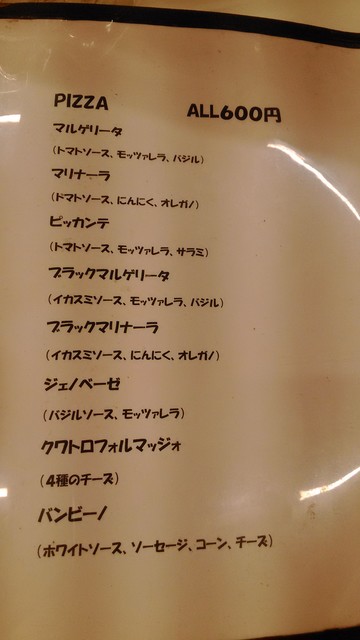 PIZZA ALL600円
マルゲリータ
(トマトソース、モッツァレラ、バジル)
マリナーラ
(トマトソース、にんにく、オレガノ)
ピッカンテ
(トマトソース、モッツァレラ、サラミ)
ブラックマルゲリータ
(イカスミソース、モッツァレラ、バジル)
ブラックマリナーラ
(イカスミソース、にんにく、オレガノ)
ジェノベーゼ
(バジルソース、モッツァレラ)
クワトロフォルマッジォ
(4種のチーズ)
バンビーノ
(ホワイトソース、ソーセージ、コーン、チーズ)